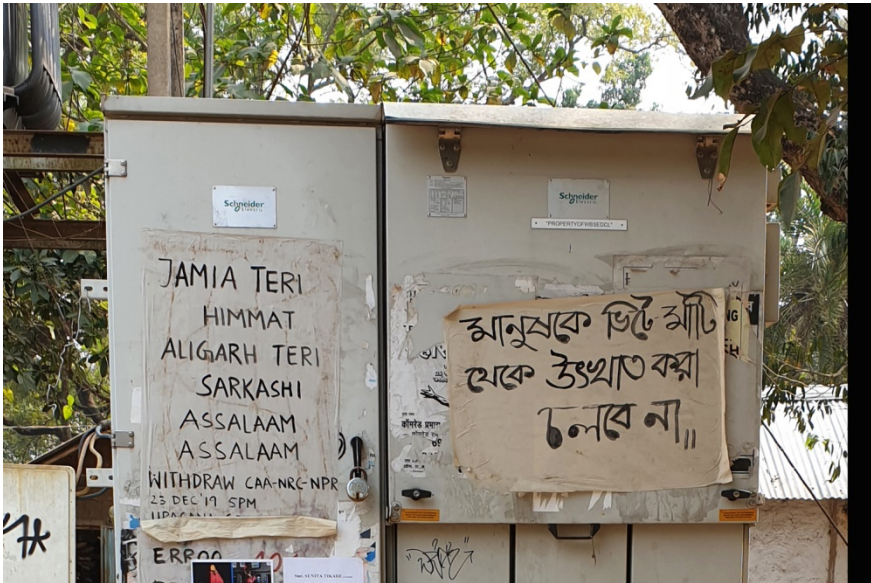 Schneider
Electric
JAMIA TERI
HIMMAT
ALIGARH TERI
SARKASHI
ASSALAAM
ASSALAAM
WITHDRAW CAA-NRC-NPR
23 DEC'19 5PM
Schneider
Electric
"PROPERTYOFWBSEDCL"
মানুষকে ভিটে মাটি
থেকে উৎখাত করা
চলবে না॥
कॉमरेड
Smt. SUNITA TIKARE